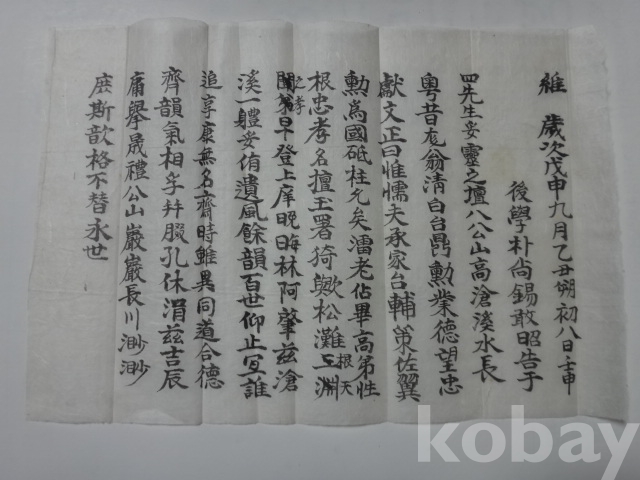 維
歲次戊申九月乙丑朔初八日壬申
後學朴尙錫敢昭告于
四先生妥靈之壇八公山高滄溪水長
粤昔厖翁清白台鼎勳業德望忠
獻文正曰惟懦夫承家台輔策佐翼
勳爲國砥柱允矣濡老佔畢高弟性
根忠孝名擅玉署猗歟松灘玉淵根天
之孝
閨第早登上庠晚晦林阿肇玆滄
溪一軆妥侑遺風餘韻百世仰止冝誰
追享康無名齋時雖異同道合德
齊韻氣相孚幷腏孔休涓兹吉辰
庸擧晟禮公山巖巖長川渺渺
庶斯歆格不替永世
kobay